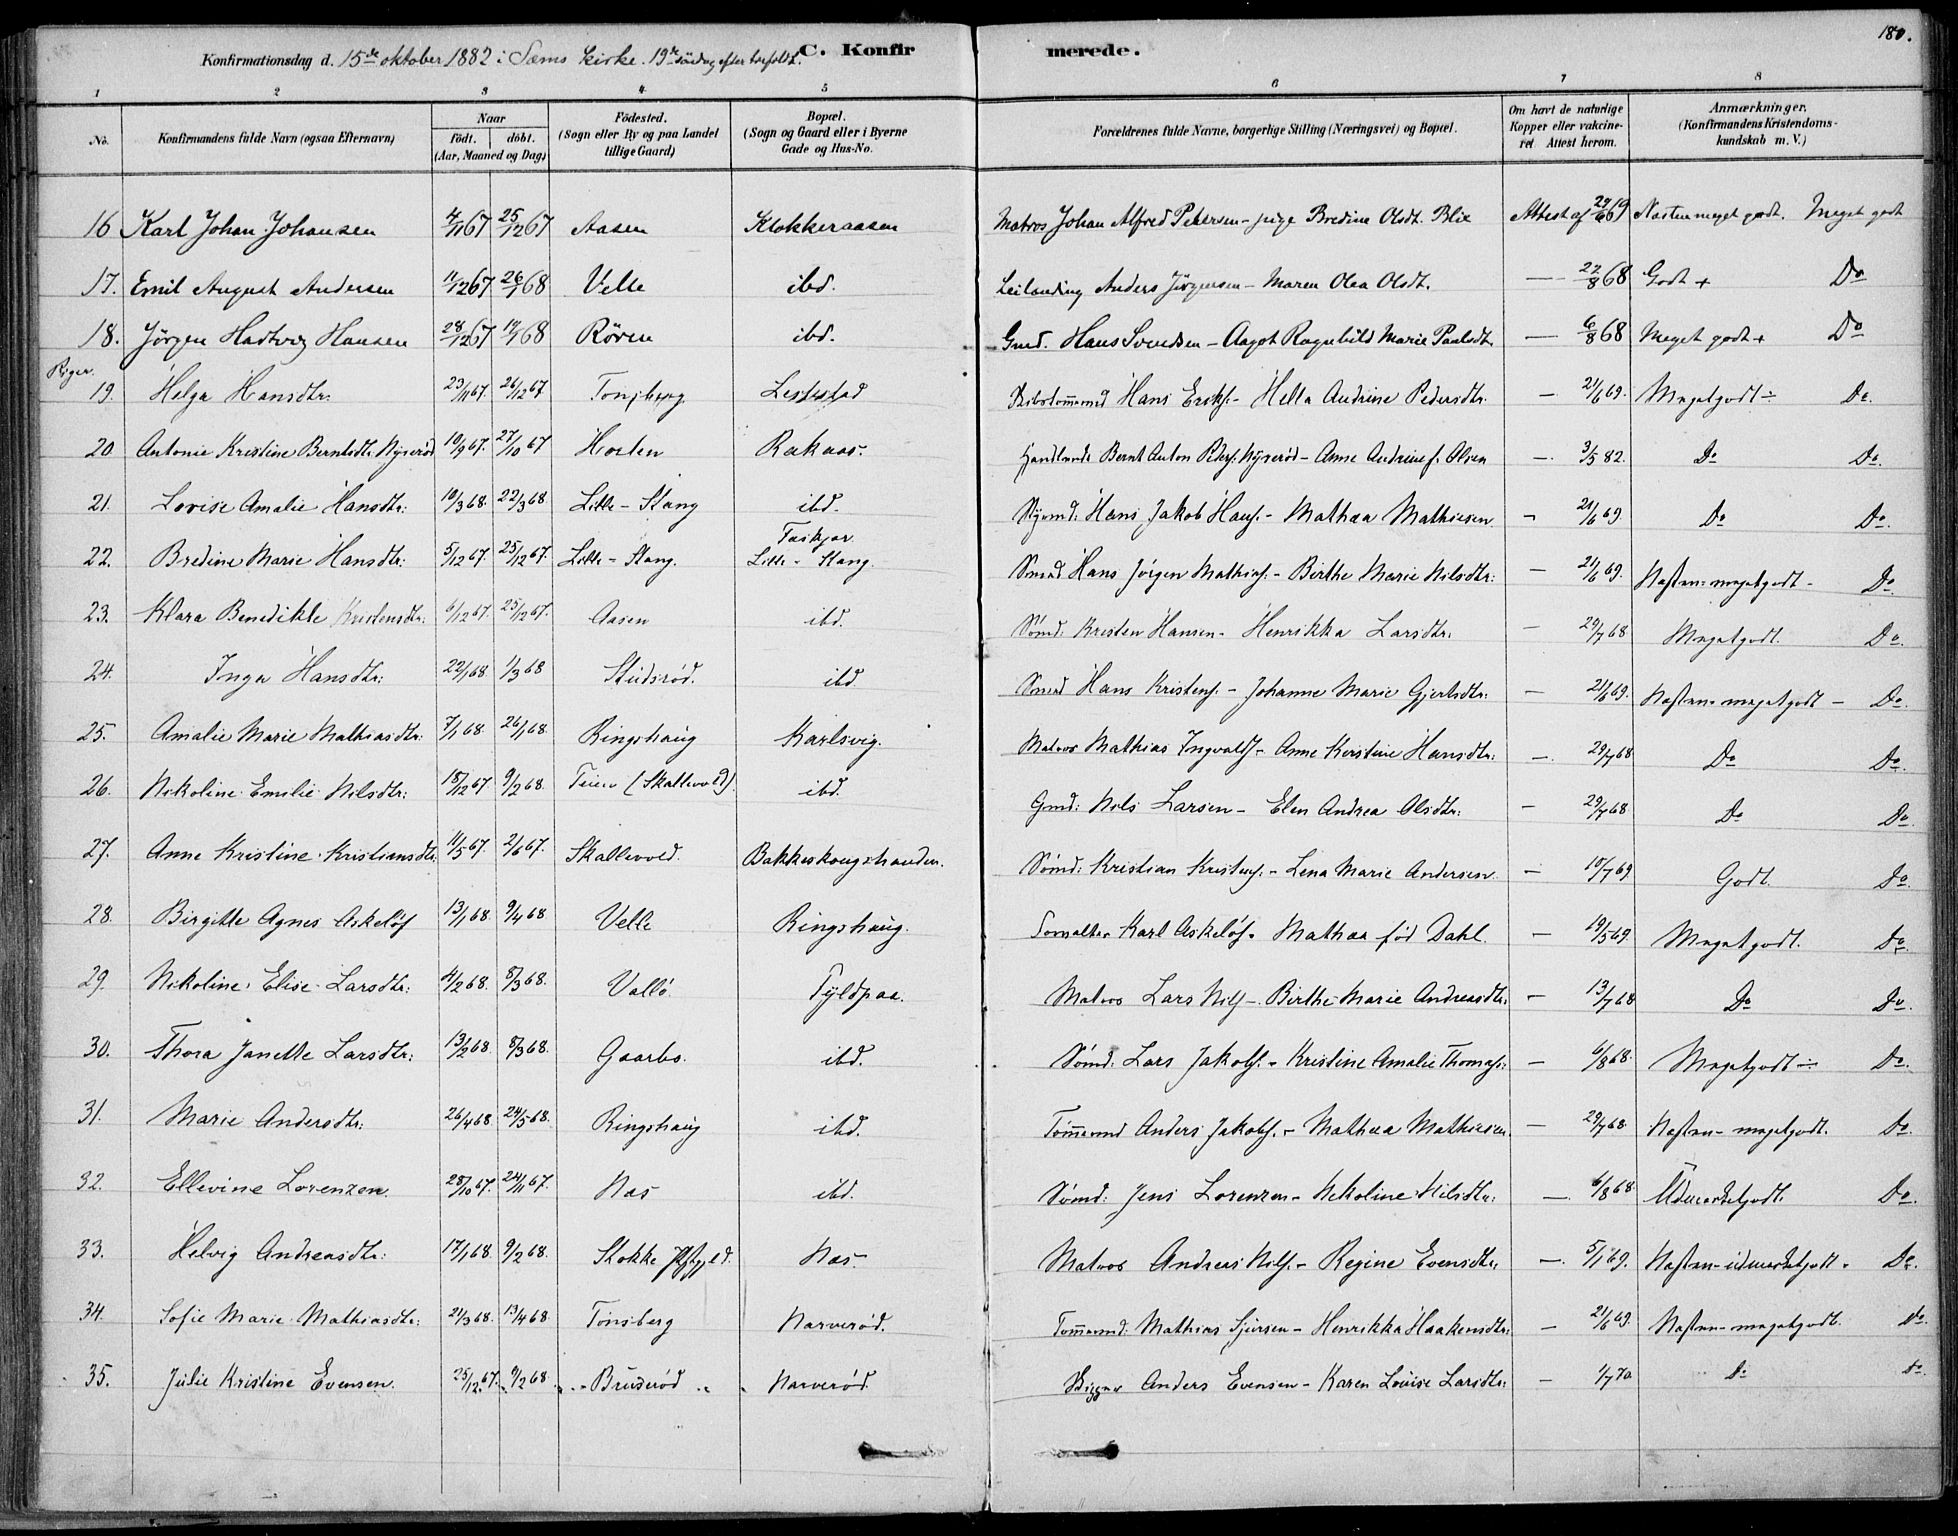 180.
C. Konfirmerede.
Konfirmationsdag d. 15de oktober 1882 i Sems kirke. 19de söndag efter trefoldh.
1 2 3 4 5 6 7 8
No. Konfirmandens fulde Navn (ogsaa Efternavn) Naar födt. döbt. (Aar, Maaned og Dag) Födested. (Sogn eller By og paa Landet tillige Gaard) Bopæl. (Sogn og Gaard eller i Byerne Gade og Hus-No. Forældrenes fulde Navne, borgerlige Stilling (Næringsvei) og Bopæl. Om havt de naturlige Kopper eller vakcineret. Attest herom. Anmærkninger. (Konfirmandens Kristendomskundskab m. V.)
16 Karl Johan Johansen 4/11 67 25/12 67 Aasen Klokkeraasen Matros Johan Alfred Petersen - pige Bredine Olsdt. Blix Attest af 29/6 69 Næsten meget godt. Meget godt
17. Emil August Andersen 11/12 67 26/1 68 Velle ibd. Leilænding Anders Jörgensen - Maren Olea Olsdt. — 22/8 68 Godt + Do
18. Jörgen Hartvig Hansen 28/12 67 19/1 68 Rören ibd. Gmd. Hans Svendsen - Aagot Ragnhild Marie Paulsdt. — 6/8 68 Meget godt + Do
Piger.
19. Helga Hansdtr. 23/11 67. 26/12 67 Tonsberg Leststad Skibstømmermd Hans Eriks. - Hella Andrine Pedersdtr. — 21/6 69. Meget godt ÷ Do.
20. Antonie Kristine Berntsdtr. Nyserød 10/9 67. 27/10 67 Horten Rakaas. Handlende Bernt Anton Peders. Nyserød - Anne Andrine f. Olsen —. 3/5 82. Do Do.
21. Lovise Amalie Hansdtr: 10/3 68. 22/3 68. Lille - Stang ibd. Hans Jakob Hans. - Mathea Mathiesen 21/6 69. Do Do.
22. Bredine Marie Hansdtr: 5/12 67. 25/12 67. Lille - Stang. Taskjær Lille - Stang Smed Hans Jörgen Mathias. - Birthe Marie Nilsdtr: — 21/6 69. Næsten meget godt - Do.
23. Klara Benedikte Kristensdtr: 6/12 67. 25/12 67. Aasen ibd. Sömd: Kristen Hansen - Henrikka Larsdtr. — 29/7 68 Meget godt. Do.
24. Inga Hansdtr: 22/1 68. 1/3 68 Stüdsrød. ibd Smed Hans Kristens. - Johanne Marie Gjertsdtr: — 21/6 69. Næsten meget godt — Do.
25. Amalie Marie Mathiasdtr: 7/1 68. 26/1 68. Ringshaüg Karlsvig. Matros Mathias Ingvalds. - Anne Kirstine Hansdtr: —. 29/7 68 Do Do.
26. Nikoline Emilie Nilsdtr: 18/12 67 9/2 68. Teien (Skallevold). ibd. Gmd: Nils Larsen - Elen Andrea Olsdtr: — 29/7 68 Do Do.
27. Anne Kristine Kristiansdtr: 11/5 67. 2/6 67. Skallevold. Bakkeskaugstranden. Sömd: Kristian Kristens. - Lena Marie Andersen. — 10/7 69 Godt. Do.
28. Birgitte Agnes Askelöf 13/1 68. 9/4 68 Velle Ringshaüg. Karl Askelöf. - Mathea föd Dahl. — 19/5 69 Meget godt. Do.
29. Nikoline Elise Larsdtr: 4/2 68. 8/3 68. Vallö Fyldpaa. Matros Lars Nils. - Birthe Marie Andreasdtr: — 13/7 68 Do Do.
30. Thora Janette Larsdtr: 13/2 68. 8/3 68. Gaarbo. ibd. Sömd: Lars Jakobs. - Kristine Amalie Thomas: — 6/8 68. Meget godt ÷ Do.
31. Marie Andersdtr: 26/4 68. 24/5 68. Ringshaüg ibd. Tømmermd Anders Jakobs. - Mathea Mathiesen. — 29/7 68. Næsten meget godt. Do.
32. Ellevine Lorenzen 28/10 67. 24/11 67. Næs ibd. Sömd: Jens Lorenzen - Nikoline Nilsdtr: —. 6/8 68 Udmærket godt. Do.
33. Helvig Andreasdtr: 17/1 68. 9/2 68. Stokke Præstgjeld. Næs. Matros Andreas Nils. - Regine Evensdtr: —. 5/1 69. Næsten udmærket godt. Do.
34. Sofie Marie Mathiasdtr: 21/3 68. 13/4 68 Tönsberg Narverød. Tømmermd: Mathias Sjursen - Henrikka Haakensdtr: — 21/6 69. Næsten meget godt. Do.
35. Jülie Kristine Evensen. 25/12 67. 9/2 68 Brüserød Narverød Anders Evensen - Karen Lovise Larsdtr: — 1/7 70 Do Do.